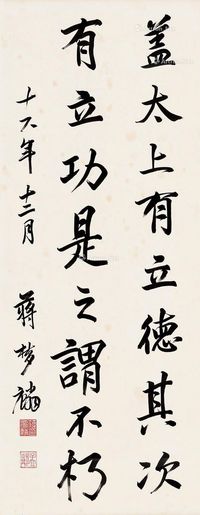 盖太上有立德其次
有立功是之謂不朽
十六年十二月 蔣夢麟